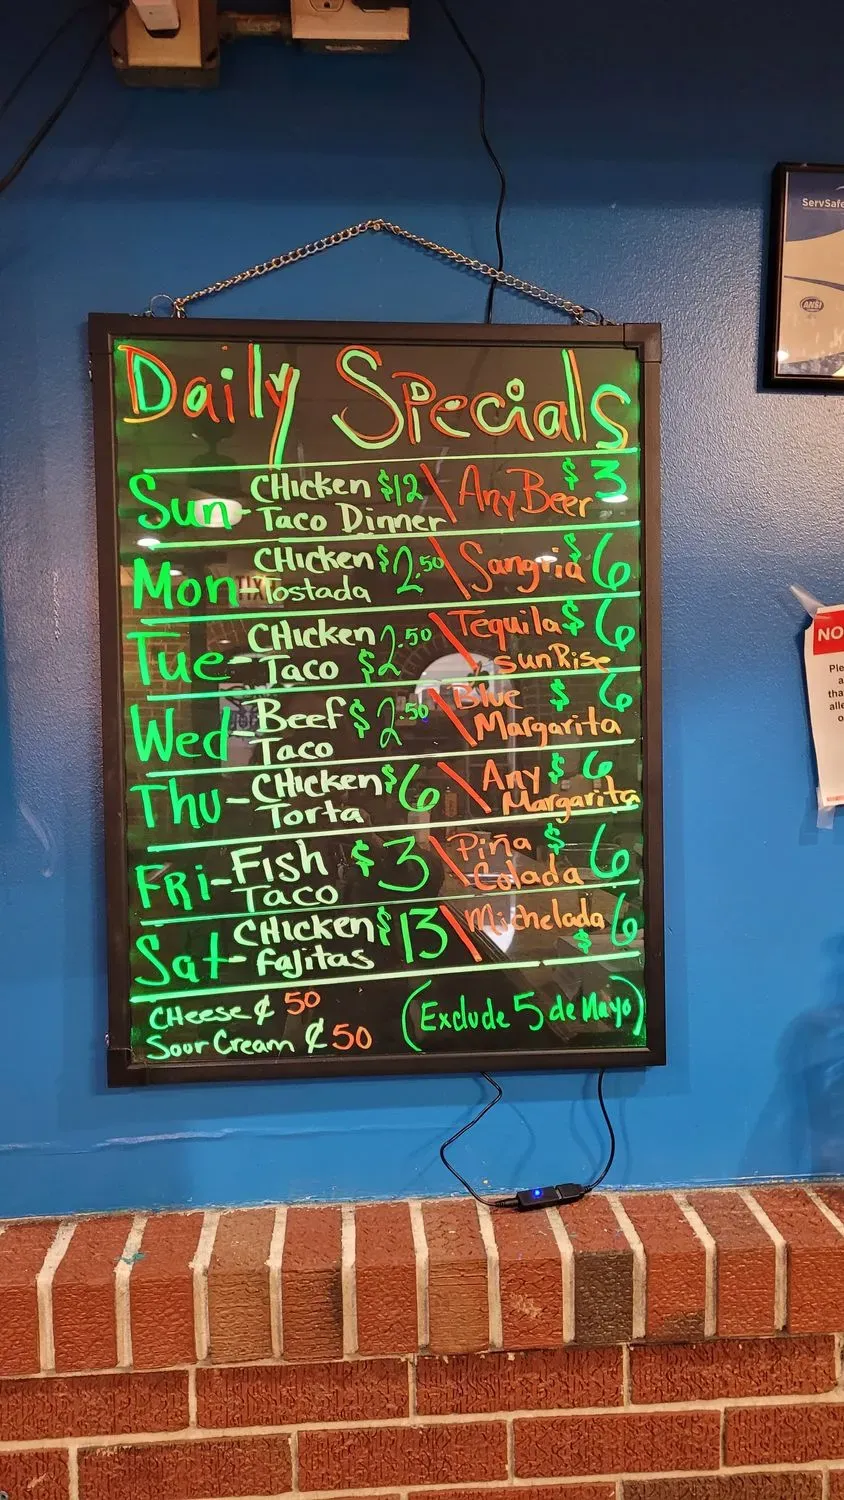 Daily Specials
Sun- Chicken $12 \ Any Beer $3
Taco Dinner
Mon- Chicken $2.50 \ Sangria $6
Tostada
Tue- Chicken $2.50 \ Tequila $6
Taco sunRise
Wed- Beef $2.50 \ Blue $6
Taco Margarita
Thu- Chicken $6 \ Any $6
Torta Margarita
Fri- Fish $3 \ Piña $6
Taco Colada
Sat- Chicken $13 \ Michelada $6
fajitas
Cheese ¢ 50
Sour Cream ¢ 50
(Exclude 5 de Mayo)
ServSafe
ANSI
NO
Ple
a
tha
alle
o